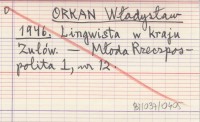 ORKAN Władysław
1946, Lingwista w kraju
Zulów. — Młoda Rzeczpos-
polita 1, nr 12.